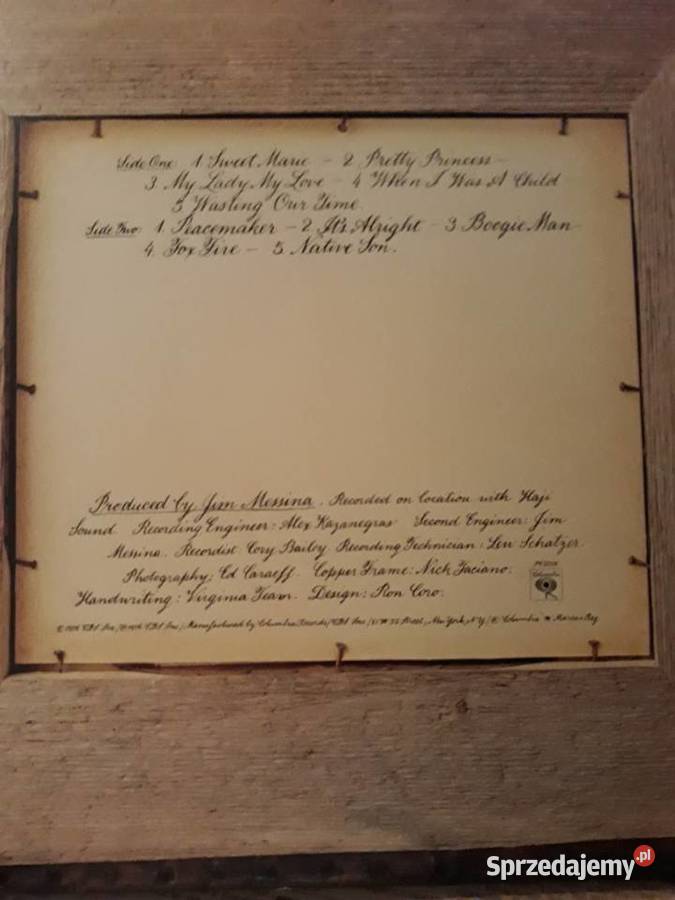 Side One 1 Sweet Marie - 2 Pretty Princess -
3 My Lady, My Love - 4 When I Was A Child
5 Wasting Our Time
Side Two 1. Peacemaker - 2 It's Alright - 3 Boogie Man -
4 Fox Fire - 5 Native Son.
Produced by Jim Messina. Recorded on location with Haji
Sound Recording Engineer: Alex Kazanegras Second Engineer: Jim
Messina. Recordist Cory Bailey Recording Technician: Len Schatzer.
Photography: Ed Caraeff. Copper Frame: Nick Faciano.
Handwriting: Virginia Team. Design: Ron Coro.
Columbia
© 1976 CBS Inc./℗ 1976 CBS Inc./Manufactured by Columbia Records/CBS Inc./51 W 52 Street, New York, N.Y./® Columbia Marcas Reg.
Sprzedajemy.pl